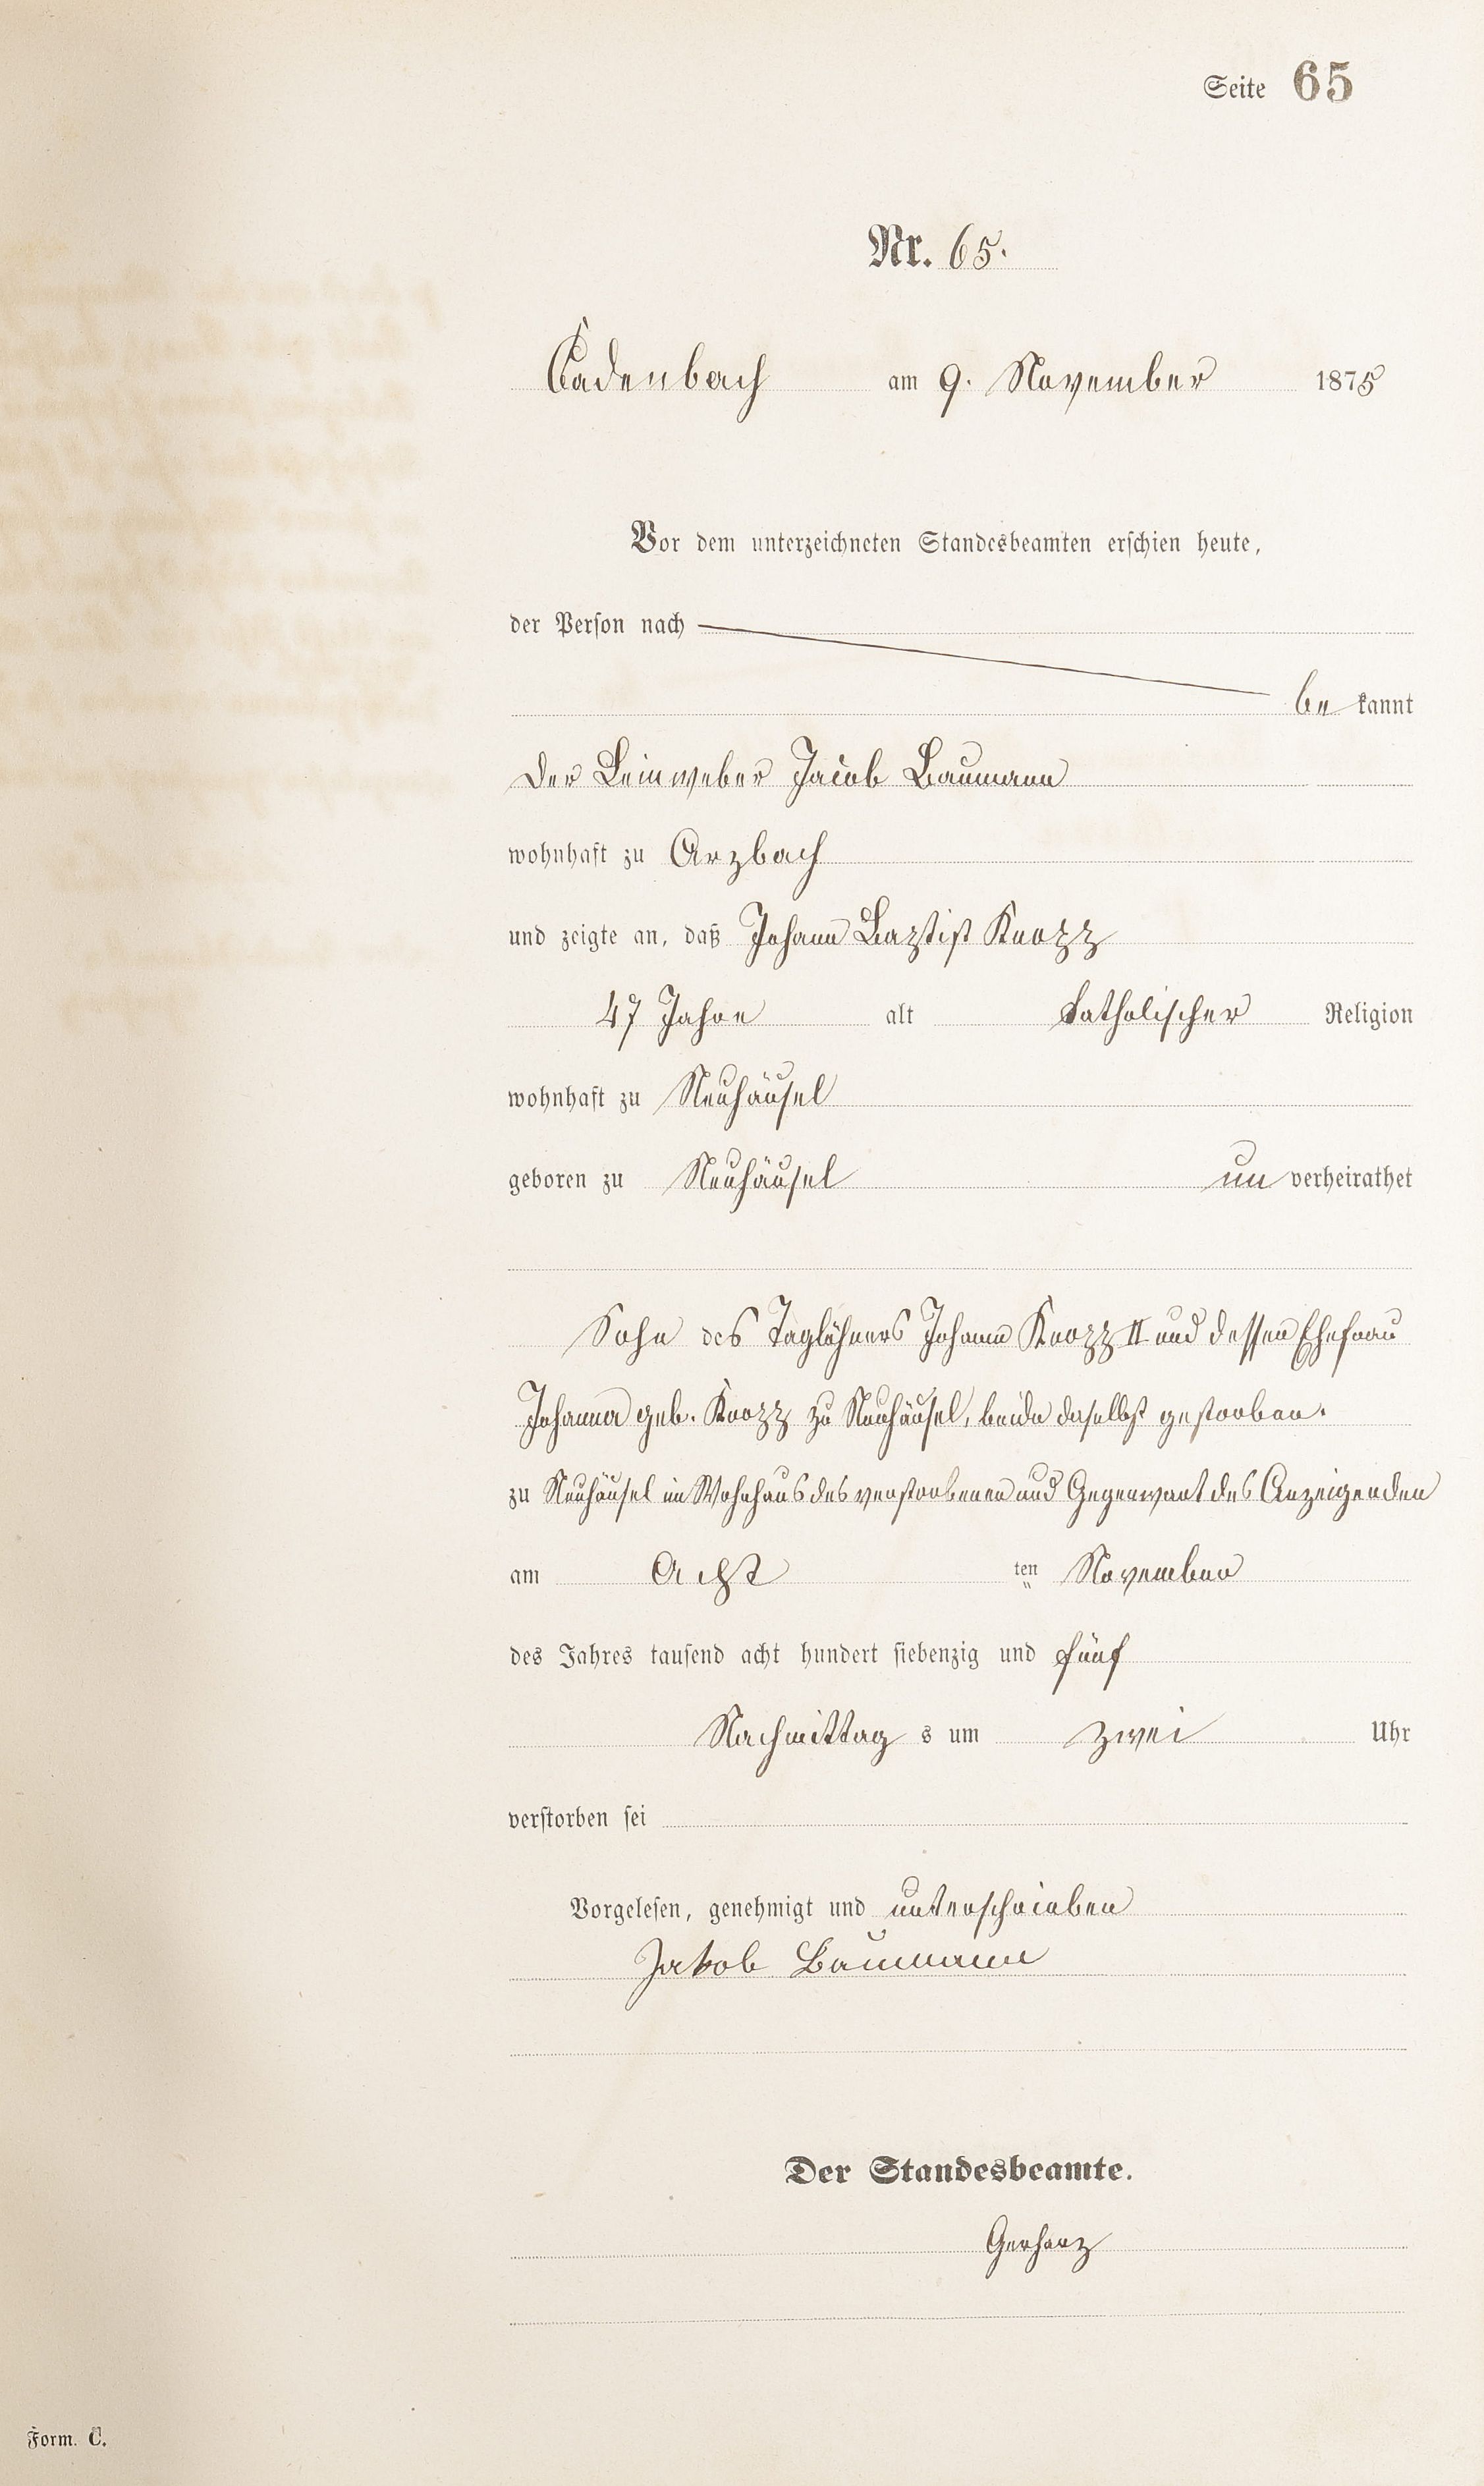 Seite 65
Nr. 65.
Cadenbach am 9. November 1875
Vor dem unterzeichneten Standesbeamten erschien heute,
der Person nach
be kannt
der Leinweber Jacob Baumann
wohnhaft zu Arzbach
und zeigte an, daß Johann Baptist Knopp
47 Jahre alt katholischer Religion
wohnhaft zu Neuhäusel
geboren zu Neuhäusel un verheirathet
Sohn des Taglöhners Johann Knopp II und dessen Ehefrau
Johanna geb. Knopp zu Neuhäusel, beide daselbst gestorben.
zu Neuhäusel im Wohnhaus des verstorbenen und Gegenwart des Anzeigenden
am Acht ten November
des Jahres tausend acht hundert siebenzig und fünf
Nachmittag s um zwei Uhr
verstorben sei
Vorgelesen, genehmigt und unterschrieben
Jakob Baumann
Der Standesbeamte.
Gerharz
Form. C.